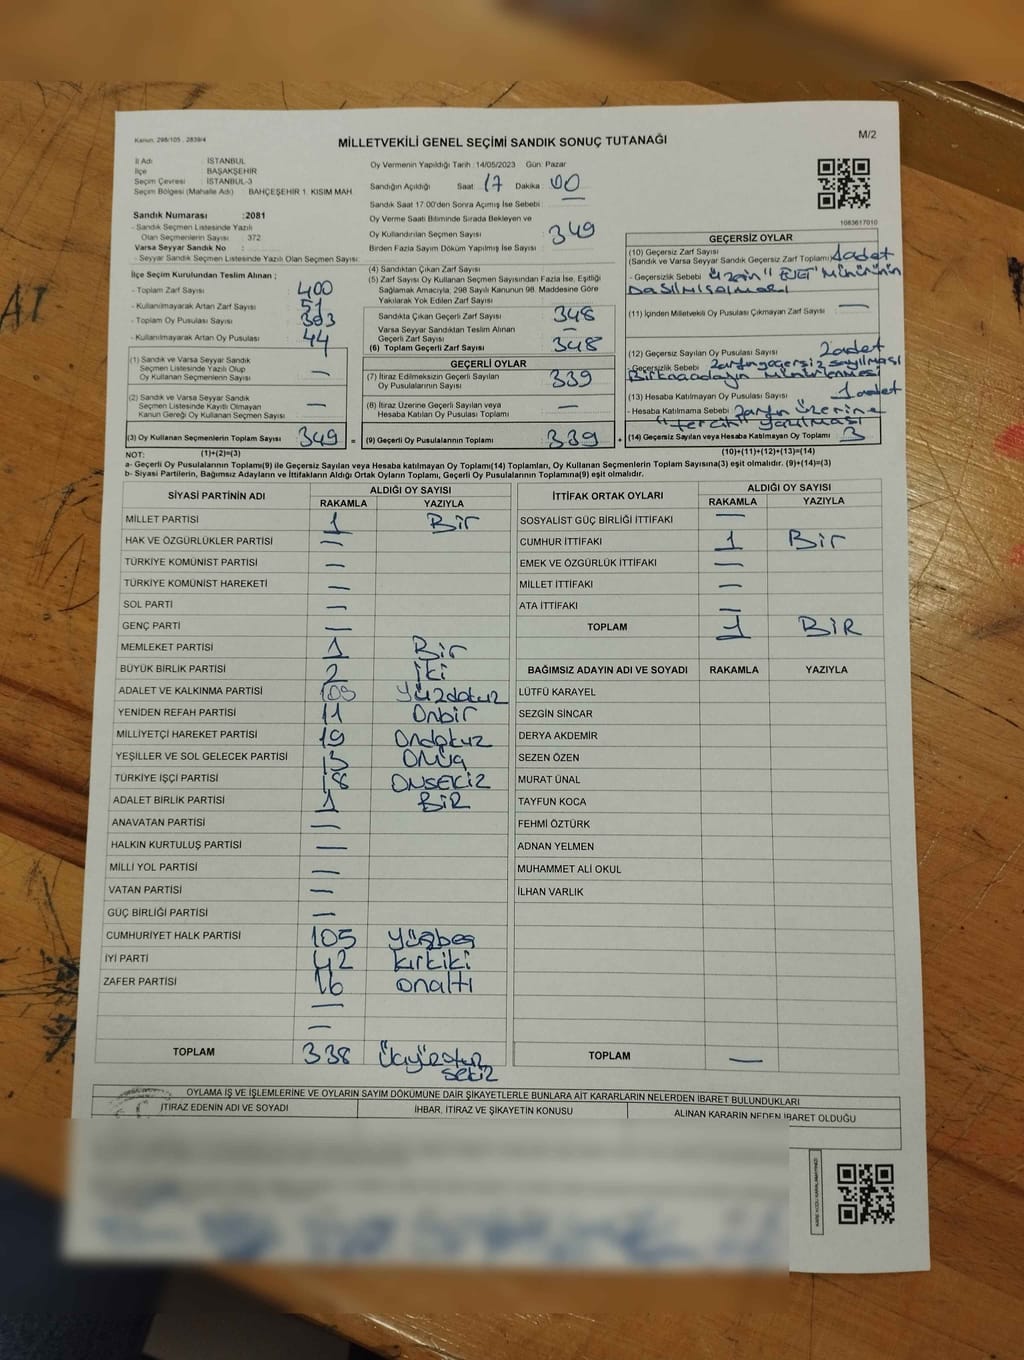 Kanun. 298/105, 2839/4
MİLLETVEKİLİ GENEL SEÇİMİ SANDIK SONUÇ TUTANAĞI
M/2
İl Adı : İSTANBUL
İlçe : BAŞAKŞEHİR
Seçim Çevresi : İSTANBUL-3
Seçim Bölgesi (Mahalle Adı) : BAHÇEŞEHİR 1. KISIM MAH.
Sandık Numarası : 2081
- Sandık Seçmen Listesinde Yazılı
Olan Seçmenlerin Sayısı : 372
Varsa Seyyar Sandık No :
- Seyyar Sandık Seçmen Listesinde Yazılı Olan Seçmen Sayısı:
İlçe Seçim Kurulundan Teslim Alınan ;
- Toplam Zarf Sayısı : 400
- Kullanılmayarak Artan Zarf Sayısı : 51
- Toplam Oy Pusulası Sayısı
- Kullanılmayarak Artan Oy Pusulası : 44
(1) Sandık ve Varsa Seyyar Sandık
Seçmen Listesinde Yazılı Olup
Oy Kullanan Seçmenlerin Sayısı : —
(2) Sandık ve Varsa Seyyar Sandık
Seçmen Listesinde Kayıtlı Olmayan
Kanun Gereği Oy Kullanan Seçmen Sayısı : —
(3) Oy Kullanan Seçmenlerin Toplam Sayısı : 349
Oy Vermenin Yapıldığı Tarih : 14/05/2023 Gün: Pazar
Sandığın Açıldığı Saat : 17 Dakika : 00
Sandık Saat 17:00'den Sonra Açılmış İse Sebebi : —
Oy Verme Saati Bitiminde Sırada Bekleyen ve
Oy Kullandırılan Seçmen Sayısı : 349
Birden Fazla Sayım Döküm Yapılmış İse Sayısı :
(4) Sandıktan Çıkan Zarf Sayısı :
(5) Zarf Sayısı Oy Kullanan Seçmen Sayısından Fazla İse, Eşitliği
Sağlamak Amacıyla, 298 Sayılı Kanunun 98. Maddesine Göre
Yakılarak Yok Edilen Zarf Sayısı :
Sandıkta Çıkan Geçerli Zarf Sayısı : 348
Varsa Seyyar Sandıktan Teslim Alınan
Geçerli Zarf Sayısı : —
(6) Toplam Geçerli Zarf Sayısı : 348
GEÇERLİ OYLAR
(7) İtiraz Edilmeksizin Geçerli Sayılan
Oy Pusulalarının Sayısı : 339
(8) İtiraz Üzerine Geçerli Sayılan veya
Hesaba Katılan Oy Pusulası Toplamı : —
= (9) Geçerli Oy Pusulalarının Toplamı : 339 +
1083617010
GEÇERSİZ OYLAR
(10) Geçersiz Zarf Sayısı
(Sandık ve Varsa Seyyar Sandık Geçersiz Zarf Toplamı) 1 adet
- Geçersizlik Sebebi : "EVET" Mührünün
(11) İçinden Milletvekili Oy Pusulası Çıkmayan Zarf Sayısı : —
(12) Geçersiz Sayılan Oy Pusulası Sayısı : 2 adet
- Geçersizlik Sebebi : Zarfın geçersiz sayılması
(13) Hesaba Katılmayan Oy Pusulası Sayısı : 1 adet
- Hesaba Katılmama Sebebi : Zarfın üzerine
"tercih" yazılması
(14) Geçersiz Sayılan veya Hesaba Katılmayan Oy Toplamı : 3
NOT: (1)+(2)=(3) (10)+(11)+(12)+(13)=(14)
a- Geçerli Oy Pusulalarının Toplamı(9) ile Geçersiz Sayılan veya Hesaba katılmayan Oy Toplamı(14) Toplamları, Oy Kullanan Seçmenlerin Toplam Sayısına(3) eşit olmalıdır. (9)+(14)=(3)
b- Siyasi Partilerin, Bağımsız Adayların ve İttifakların Aldığı Ortak Oyların Toplamı, Geçerli Oy Pusulalarının Toplamına(9) eşit olmalıdır.
SİYASİ PARTİNİN ADI ALDIĞI OY SAYISI
RAKAMLA YAZIYLA
MİLLET PARTİSİ 1 Bir
HAK VE ÖZGÜRLÜKLER PARTİSİ —
TÜRKİYE KOMÜNİST PARTİSİ —
TÜRKİYE KOMÜNİST HAREKETİ —
SOL PARTİ —
GENÇ PARTİ —
MEMLEKET PARTİSİ 1 Bir
BÜYÜK BİRLİK PARTİSİ 2 iki
ADALET VE KALKINMA PARTİSİ 109 Yüzdokuz
YENİDEN REFAH PARTİSİ 11 Onbir
MİLLİYETÇİ HAREKET PARTİSİ 19 Ondokuz
YEŞİLLER VE SOL GELECEK PARTİSİ 13 Onüç
TÜRKİYE İŞÇİ PARTİSİ 18 ONSEKİZ
ADALET BİRLİK PARTİSİ 1 BİR
ANAVATAN PARTİSİ —
HALKIN KURTULUŞ PARTİSİ —
MİLLİ YOL PARTİSİ —
VATAN PARTİSİ —
GÜÇ BİRLİĞİ PARTİSİ —
CUMHURİYET HALK PARTİSİ 105 yüzbeş
İYİ PARTİ 42 kırkiki
ZAFER PARTİSİ 16 onaltı
—
—
TOPLAM 338 Üçyüzotuz
sekiz
İTTİFAK ORTAK OYLARI ALDIĞI OY SAYISI
RAKAMLA YAZIYLA
SOSYALİST GÜÇ BİRLİĞİ İTTİFAKI —
CUMHUR İTTİFAKI 1 Bir
EMEK VE ÖZGÜRLÜK İTTİFAKI —
MİLLET İTTİFAKI —
ATA İTTİFAKI —
TOPLAM 1 BİR
BAĞIMSIZ ADAYIN ADI VE SOYADI RAKAMLA YAZIYLA
LÜTFÜ KARAYEL
SEZGİN SİNCAR
DERYA AKDEMİR
SEZEN ÖZEN
MURAT ÜNAL
TAYFUN KOCA
FEHMİ ÖZTÜRK
ADNAN YELMEN
MUHAMMET ALİ OKUL
İLHAN VARLIK
TOPLAM —
OYLAMA İŞ VE İŞLEMLERİNE VE OYLARIN SAYIM DÖKÜMÜNE DAİR ŞİKAYETLERLE BUNLARA AİT KARARLARIN NELERDEN İBARET BULUNDUKLARI
İTİRAZ EDENİN ADI VE SOYADI İHBAR, İTİRAZ VE ŞİKAYETİN KONUSU ALINAN KARARIN NEDEN İBARET OLDUĞU